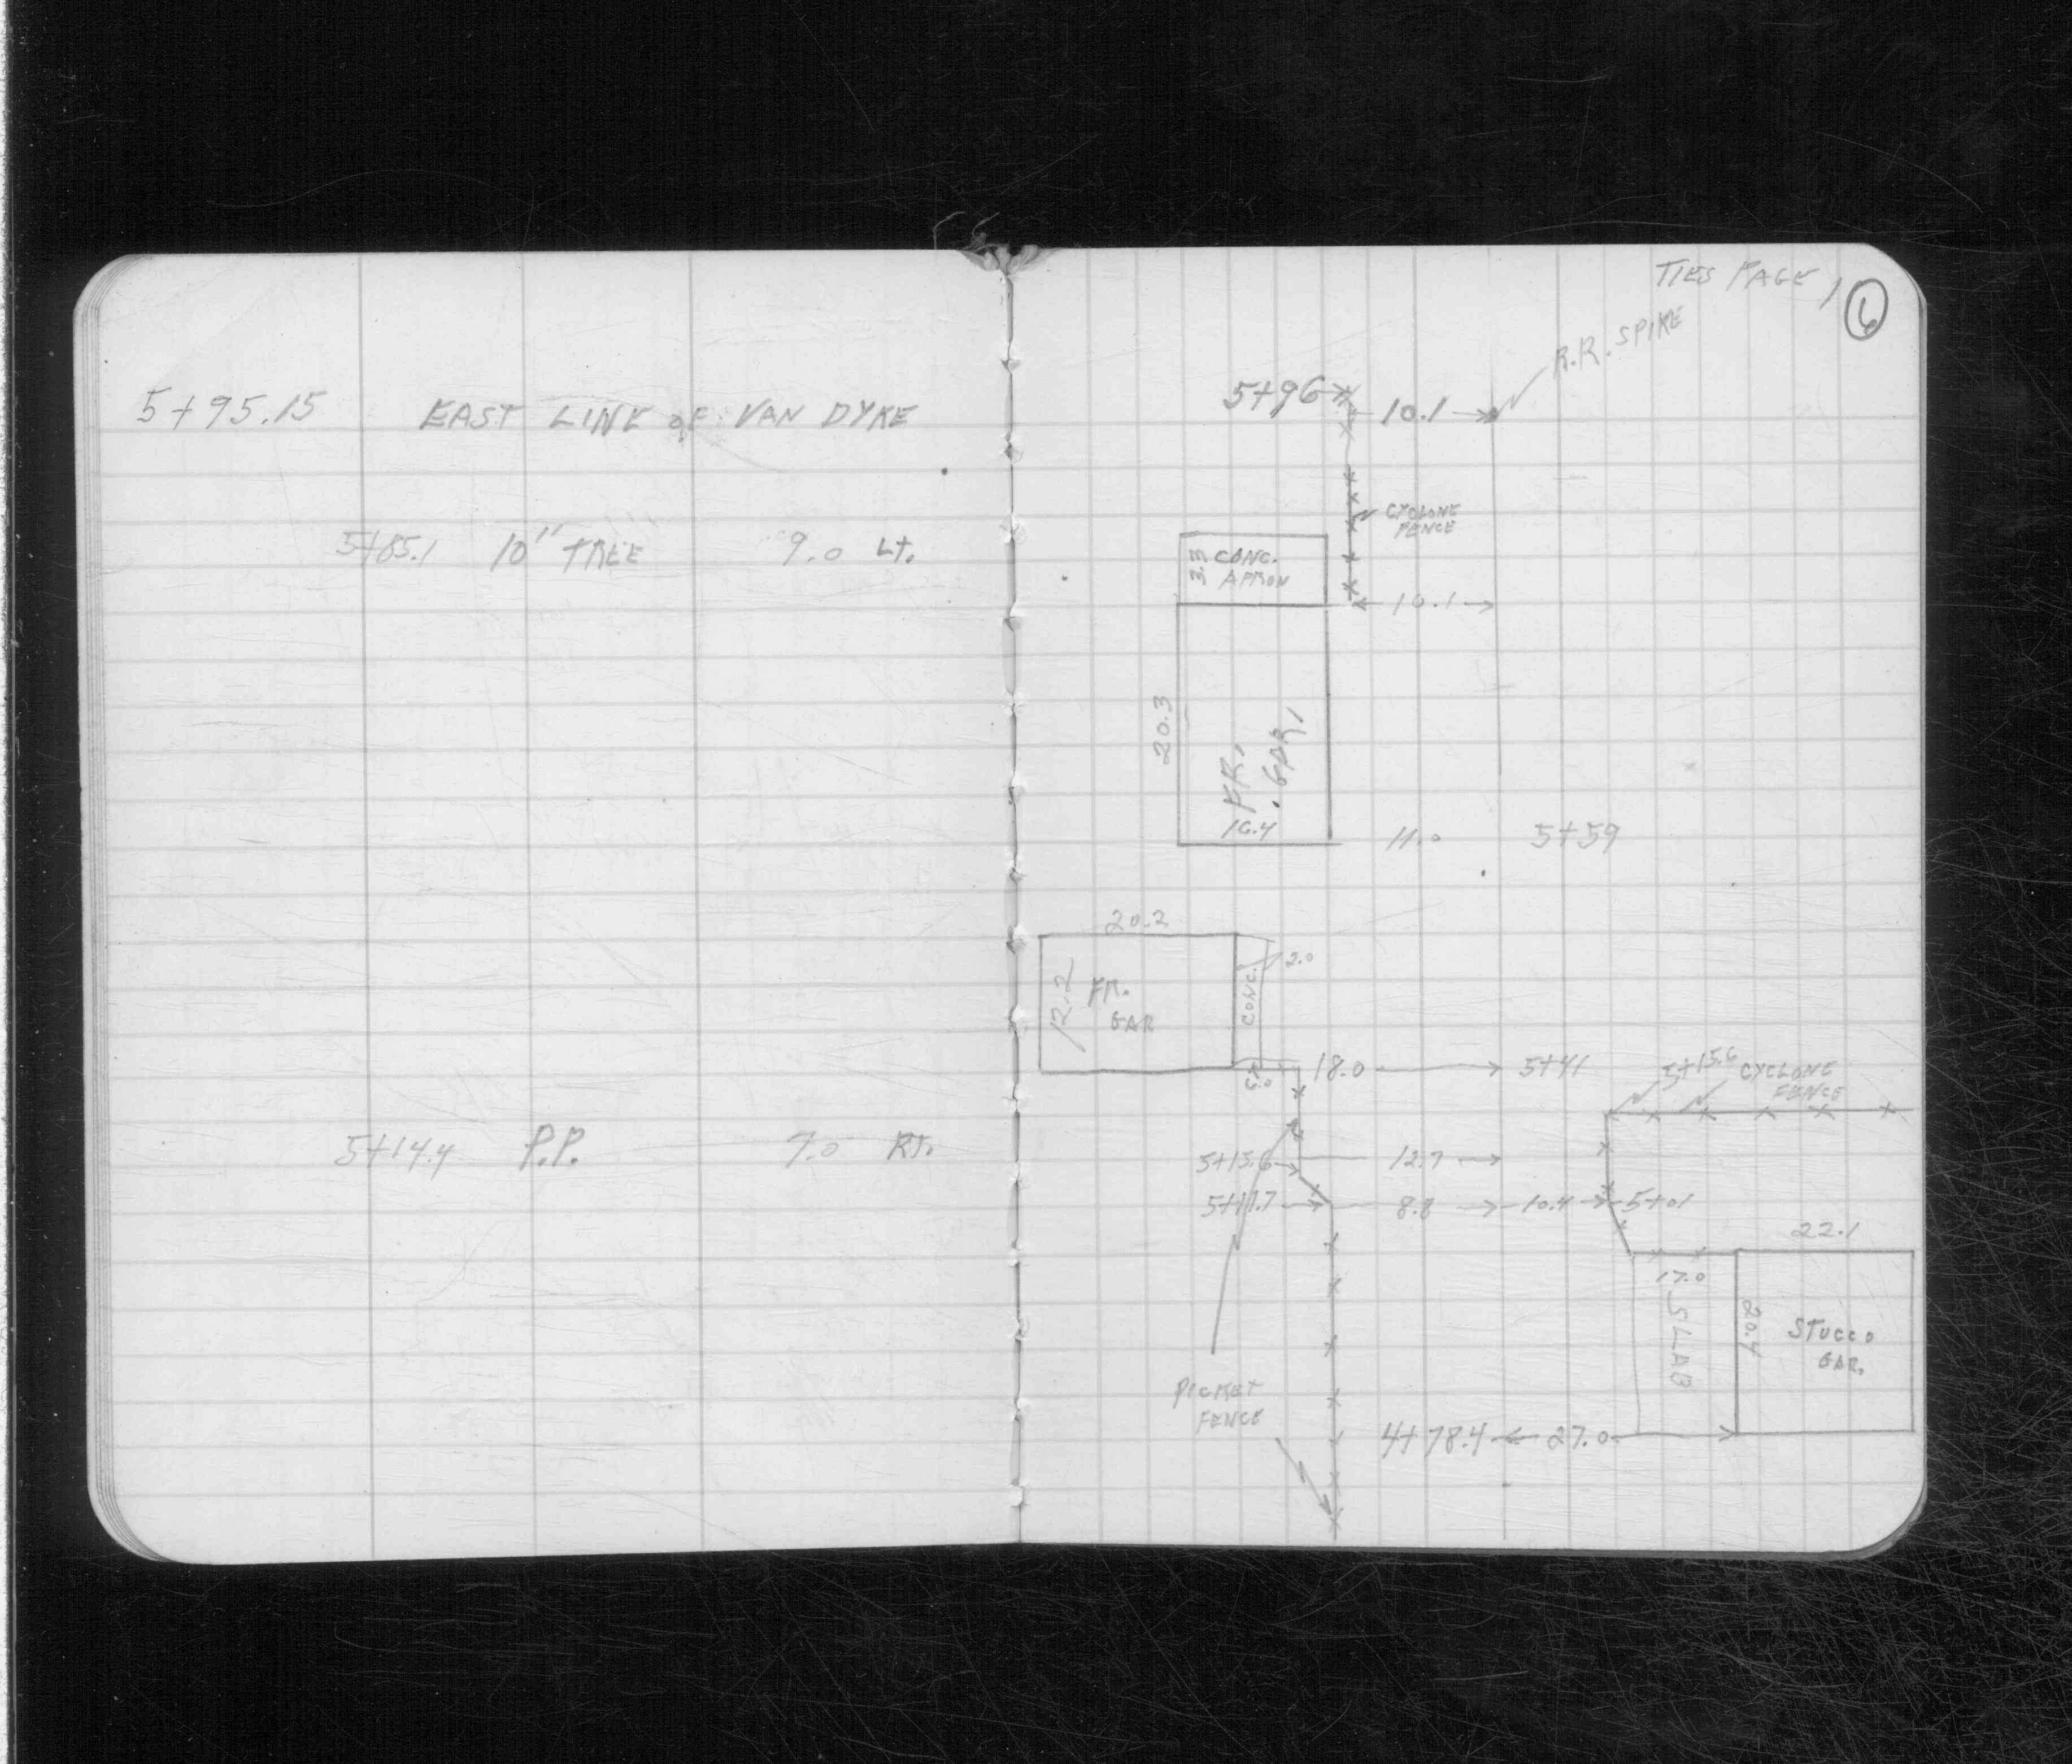 5+95.15 EAST LINE OF VAN DYKE
5+85.1 10" TREE 9.0 LT.
5+14.4 P.P. 7.0 RT.
TIES PAGE 1
6
R.R. SPIKE
5+96
10.1
CYCLONE
FENCE
CONC.
APRON
10.1
20.3
FR.
GAR.
16.4
11.0 5+59
20.2
2.0
12.2
FR.
GAR
CONC.
18.0 5+41
5+15.6
CYCLONE
FENCE
5+15.6 12.7
5+11.7 8.8 10.4 5+01
22.1
17.0
SLAB
20.4
STUCCO
GAR.
PICKET
FENCE
4+78.4 27.0